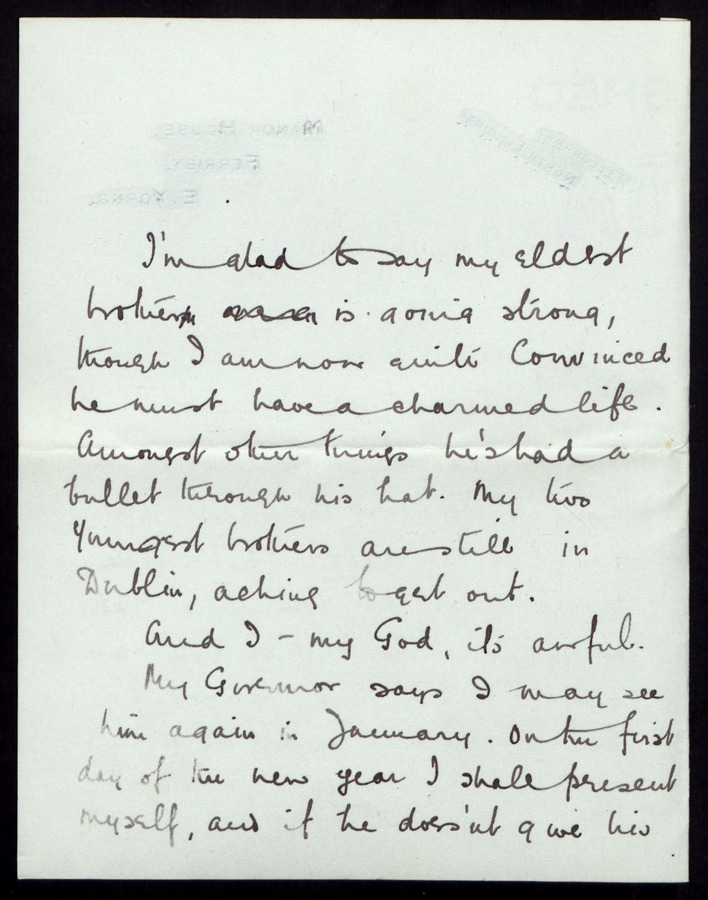 MANOR HOUSE,
FERRIBY,
E. YORKS.
I'm glad to say my eldest
brother is going strong,
though I am now quite convinced
he must have a charmed life.
Amongst other things he's had a
bullet through his hat. My two
youngest brothers are still in
Dublin, aching to get out.
And I - my God, it's awful.
My Governor says I may see
him again in January. On the first
day of the new year I shall present
myself, and if he does'nt give his